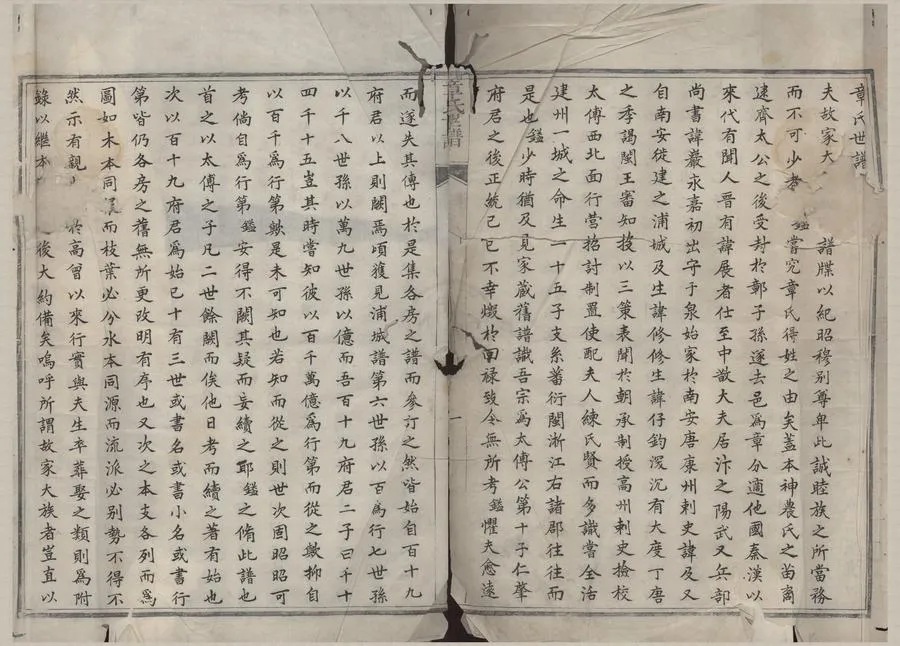 章氏世譜
夫故家大 譜牒以紀昭穆別尊卑此誠睦族之所當務
而不可少者 鑑嘗究章氏得姓之由矣蓋本神農氏之苗裔
逮齊太公之後受封於鄣子孫遂去邑爲章分適他國秦漢以
來代有聞人晉有諱展者仕至中散大夫居汴之陽武又兵部
尚書諱嚴永嘉初出守于泉始家於南安唐康州刺史諱及又
自南安徙建之浦城及生諱修修生諱仔鈞深沉有大度丁唐
之季謁閩王審知投以三策表聞於朝承制授高州刺史撿校
太傅西北面行營招討制置使配夫人練氏賢而多識嘗全活
建州一城之命生一十五子支系蕃衍閩淅江右諸郡往往而
是也鑑少時猶及見家藏舊譜識吾宗爲太傅公第十子仁肇
府君之後正統己巳不幸燬於回祿致令無所考鑑懼夫愈遠
章氏世譜
一
而遂失其傳也於是集各房之譜而參訂之然皆始自百十九
府君以上則闕焉頃獲見浦城譜第六世孫以百爲行七世孫
以千八世孫以萬九世孫以億而吾百十九府君二子曰千十
四千十五豈其時嘗知彼以百千萬億爲行第而從之歟抑自
以百千爲行第歟是未可知也若知而從之則世次固昭昭可
考倘自爲行第鑑安得不闕其疑而妄續之耶鑑之脩此譜也
首之以太傅之子凡二世餘闕而俟他日考而續之著有始也
次以百十九府君爲始已十有三世或書名或書小名或書行
第皆仍各房之舊無所更改明有序也又次之本支各列而爲
圖如木本同 而枝葉必分水本同源而流派必別勢不得不
然示有親 於高曾以來行實與夫生卒葬娶之類則爲附
錄以繼本 後大約備矣嗚呼所謂故家大族者豈直以